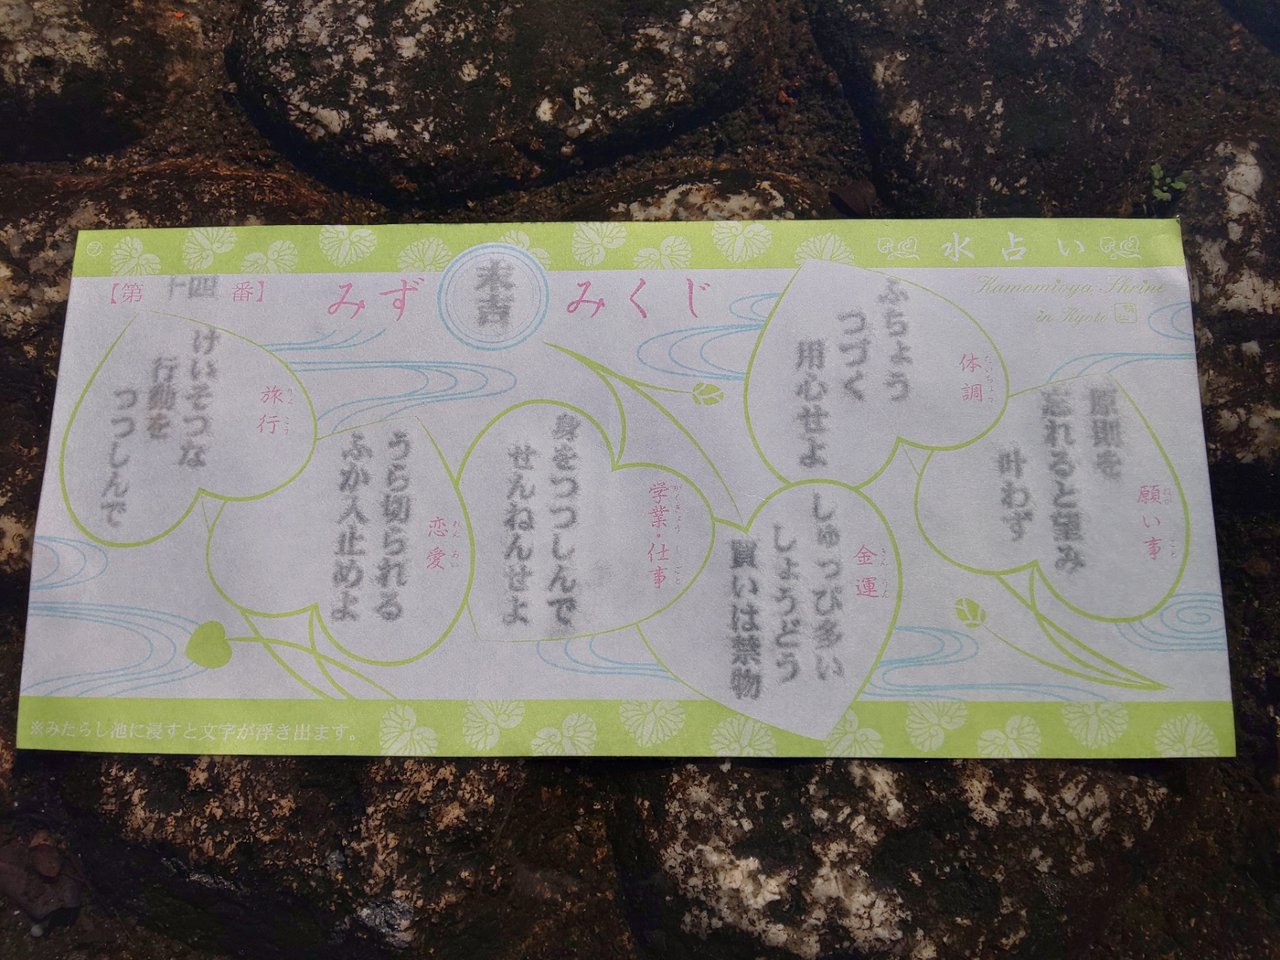 水占い
Kamomioya Shrine
in Kyoto
みずみくじ
末吉
【第十四番】
願い事
ねが ごと
原則を
忘れると望み
叶わず
体調
たいちょう
ふちょう
つづく
用心せよ
金運
きんうん
しゅっぴ多い
しょうどう
買いは禁物
学業・仕事
がくぎょう しごと
身をつつしんで
せんねんせよ
恋愛
れんあい
うら切られる
ふか入止めよ
旅行
りょこう
けいそつな
行動を
つつしんで
※みたらし池に浸すと文字が浮き出ます。